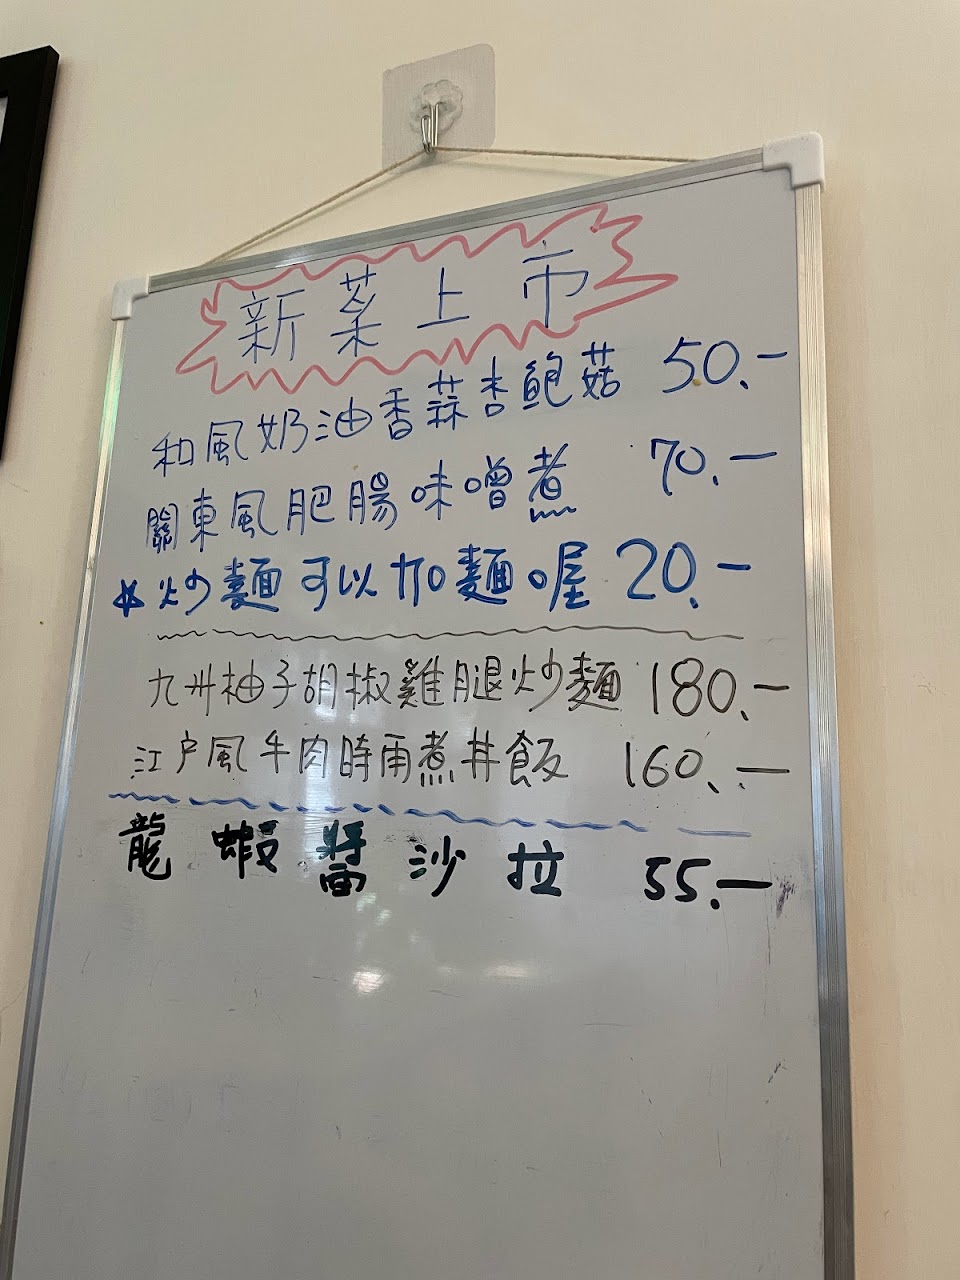 新菜上市
和風奶油香蒜杏鮑菇 50.-
關東風肥腸味噌煮 70.-
☆炒麵可以加麵喔 20.-
九州柚子胡椒雞腿炒麵 180.-
江戶風牛肉時雨煮丼飯 160.-
龍蝦醬沙拉 55.-